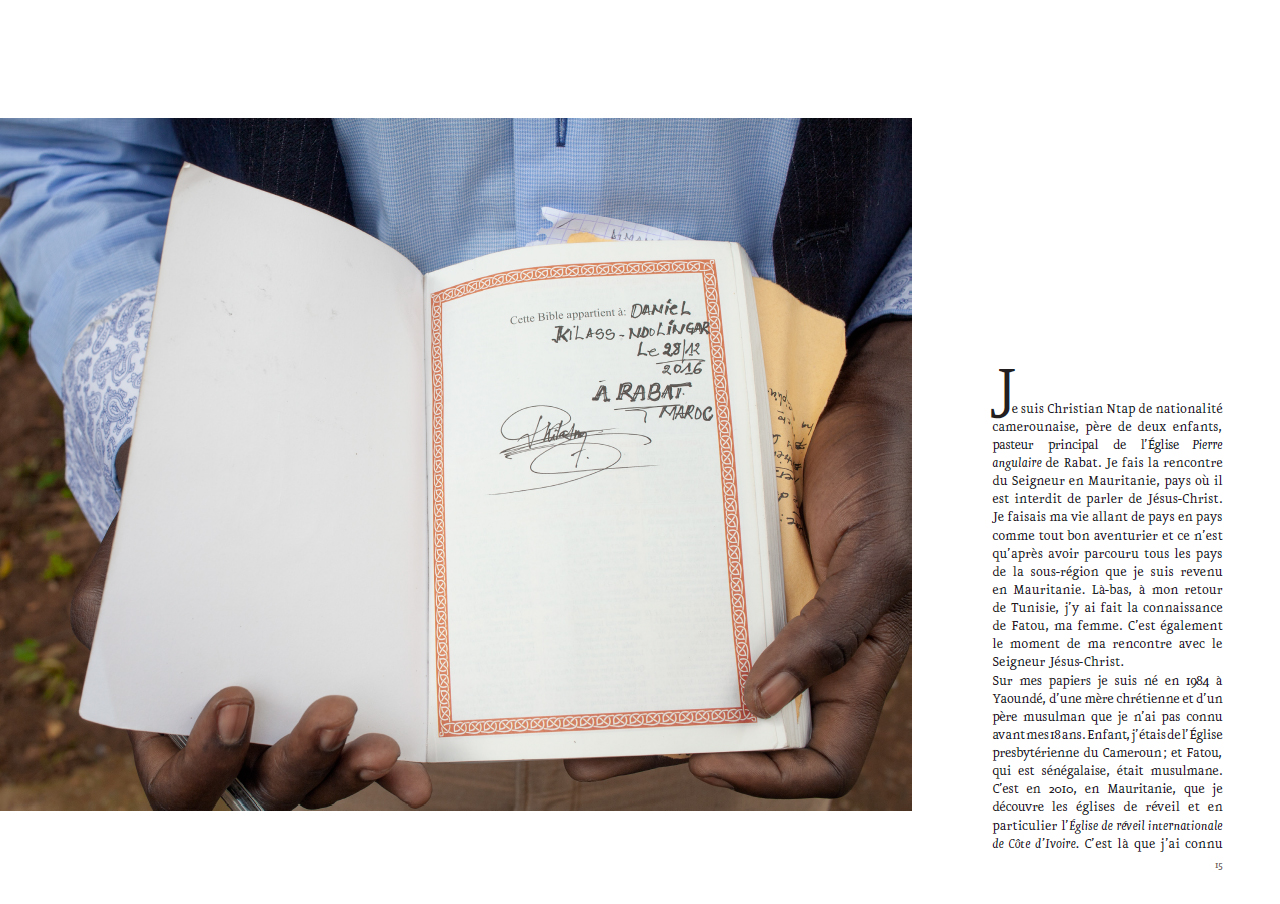 Cette Bible appartient à: DANIEL
KILASS-NDOLINGAR
Le 28/12
2016
À RABAT
MAROC
Je suis Christian Ntap de nationalité
camerounaise, père de deux enfants,
pasteur principal de l'Église Pierre
angulaire de Rabat. Je fais la rencontre
du Seigneur en Mauritanie, pays où il
est interdit de parler de Jésus-Christ.
Je faisais ma vie allant de pays en pays
comme tout bon aventurier et ce n'est
qu'après avoir parcouru tous les pays
de la sous-région que je suis revenu
en Mauritanie. Là-bas, à mon retour
de Tunisie, j'y ai fait la connaissance
de Fatou, ma femme. C'est également
le moment de ma rencontre avec le
Seigneur Jésus-Christ.
Sur mes papiers je suis né en 1984 à
Yaoundé, d'une mère chrétienne et d'un
père musulman que je n'ai pas connu
avant mes 18 ans. Enfant, j'étais de l'Église
presbytérienne du Cameroun ; et Fatou,
qui est sénégalaise, était musulmane.
C'est en 2010, en Mauritanie, que je
découvre les églises de réveil et en
particulier l'Église de réveil internationale
de Côte d'Ivoire. C'est là que j'ai connu
15